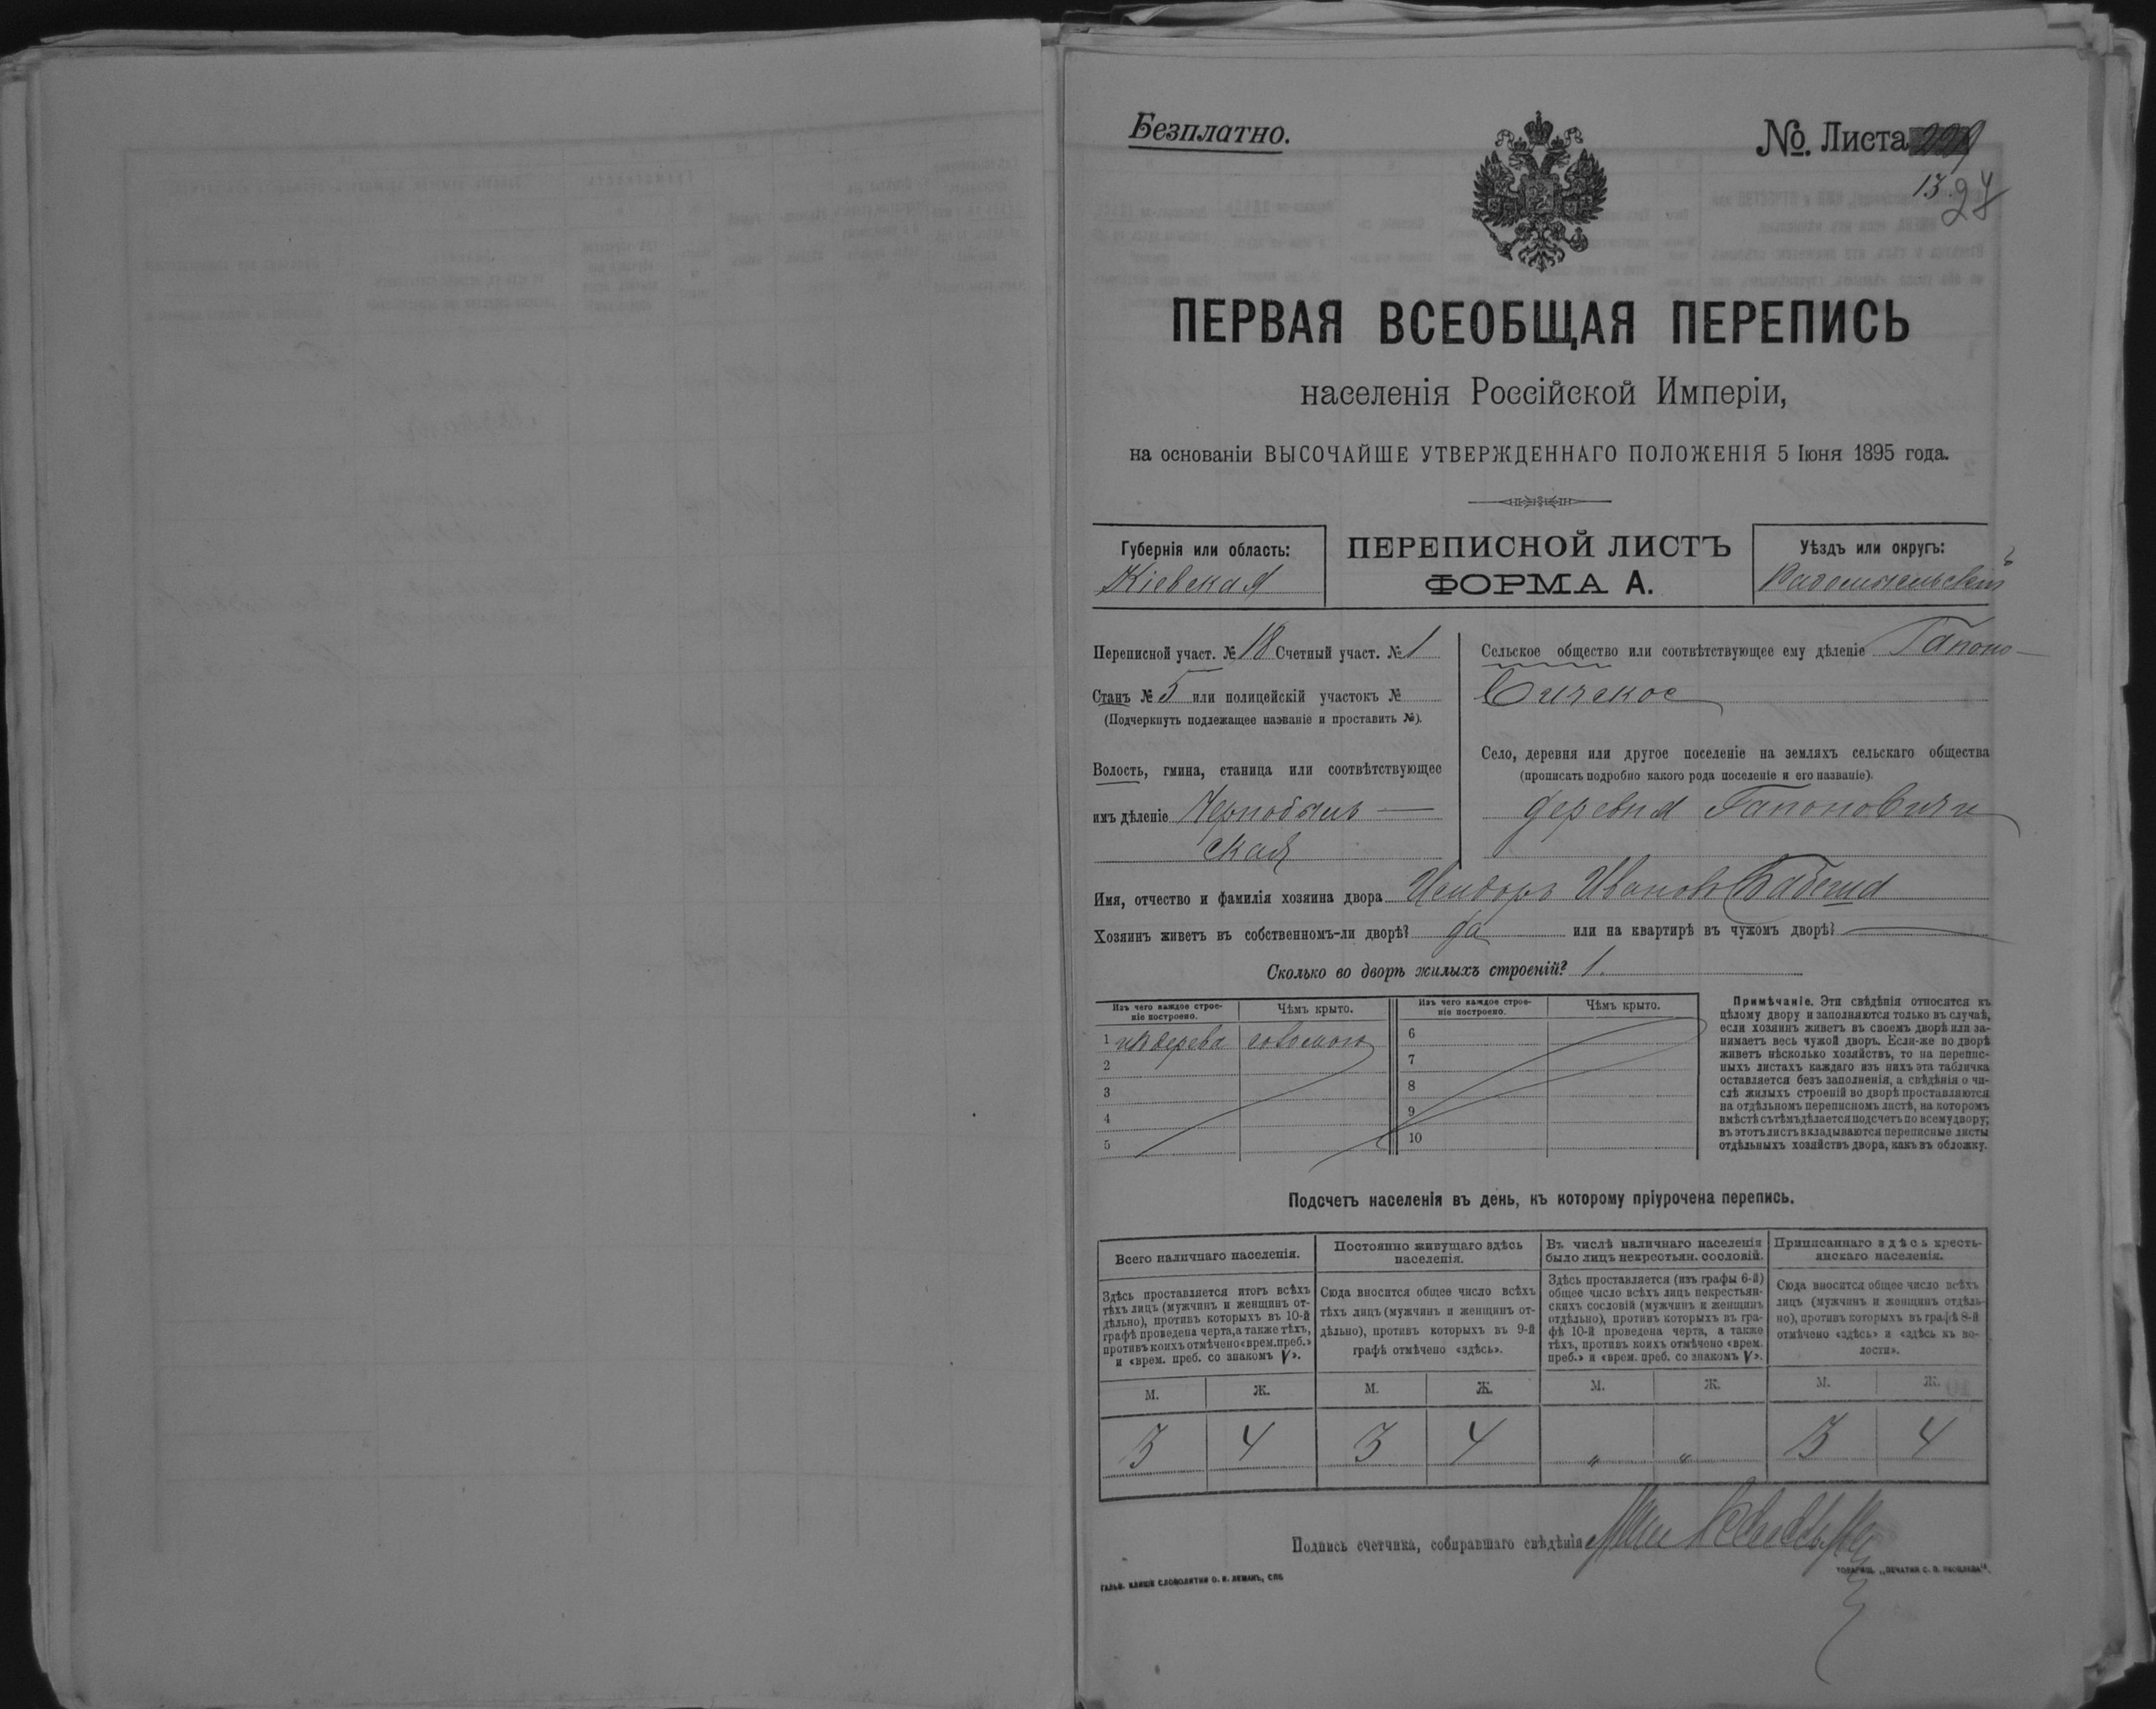 Безплатно.
№ Листа
13 24
ПЕРВАЯ ВСЕОБЩАЯ ПЕРЕПИСЬ
населенія Россійской Имперіи,
на основаніи ВЫСОЧАЙШЕ УТВЕРЖДЕННАГО ПОЛОЖЕНІЯ 5 Іюня 1895 года.
Губернія или область:
Кіевская
ПЕРЕПИСНОЙ ЛИСТЪ
ФОРМА А.
Уѣздъ или округъ:
Радомысльскій
Переписной участ. № 18 Счетный участ. № 1
Станъ № 5 или полицейскій участокъ №
(Подчеркнуть подлежащее названіе и проставить №).
Волость, гмина, станица или соотвѣтствующее
имъ дѣленіе Чернобыль—
ская
Сельское общество или соотвѣтствующее ему дѣленіе Гапоно—
вичское
Село, деревня или другое поселеніе на земляхъ сельскаго общества
(прописать подробно какого рода поселеніе и его названіе).
деревня Гапоновичи
Имя, отчество и фамилія хозяина двора Исидоръ Ивановъ
Хозяинъ живетъ въ собственномъ-ли дворѣ? да или на квартирѣ въ чужомъ дворѣ? —
Сколько во дворѣ жилыхъ строеній? 1.
Изъ чего каждое строе-
ніе построено.
Чѣмъ крыто.
Изъ чего каждое строе-
ніе построено.
Чѣмъ крыто.
1 изъ дерева соломою
2
3
4
5
6
7
8
9
10
Примѣчаніе. Эти свѣдѣнія относятся къ
цѣлому двору и заполняются только въ случаѣ,
если хозяинъ живетъ въ своемъ дворѣ или за-
нимаетъ весь чужой дворъ. Если-же во дворѣ
живетъ нѣсколько хозяйствъ, то на перепис-
ныхъ листахъ каждаго изъ нихъ эта табличка
оставляется безъ заполненія, а свѣдѣнія о чи-
слѣ жилыхъ строеній во дворѣ проставляются
на отдѣльномъ переписномъ листѣ, на которомъ
вмѣстѣ съ тѣмъ дѣлается подсчетъ по всему двору;
въ этотъ листъ вкладываются переписные листы
отдѣльныхъ хозяйствъ двора, какъ въ обложку.
Подсчетъ населенія въ день, къ которому пріурочена перепись.
Всего наличнаго населенія.
Здѣсь проставляется итогъ всѣхъ
тѣхъ лицъ (мужчинъ и женщинъ от-
дѣльно), противъ которыхъ въ 10-й
графѣ проведена черта, а также тѣхъ,
противъ коихъ отмѣчено «врем. преб.»
и «врем. преб. со знакомъ V».
Постоянно живущаго здѣсь
населенія.
Сюда вносится общее число всѣхъ
тѣхъ лицъ (мужчинъ и женщинъ от-
дѣльно), противъ которыхъ въ 9-й
графѣ отмѣчено «здѣсь».
Въ числѣ наличнаго населенія
было лицъ некрестьян. сословій.
Здѣсь проставляется (изъ графы 6-й)
общее число всѣхъ лицъ некрестьян-
скихъ сословій (мужчинъ и женщинъ
отдѣльно), противъ которыхъ въ гра-
фѣ 10-й проведена черта, а также
тѣхъ, противъ коихъ отмѣчено «врем.
преб.» и «врем. преб. со знакомъ V».
Приписаннаго здѣсь кресть-
янскаго населенія.
Сюда вносится общее число всѣхъ
лицъ (мужчинъ и женщинъ отдѣль-
но), противъ которыхъ въ графѣ 8-й
отмѣчено «здѣсь» и «здѣсь къ во-
лости».
М. Ж. М. Ж. М. Ж. М. Ж.
3 4 3 4 „ „ 3 4
Подпись счетчика, собиравшаго свѣдѣнія
ГАЛЬВ. КЛИШЕ СЛОВОЛИТНИ О. И. ЛЕМАНЪ, СПБ
ТОВАРИЩ. „ПЕЧАТНЯ С. П. ЯКОВЛЕВА“.